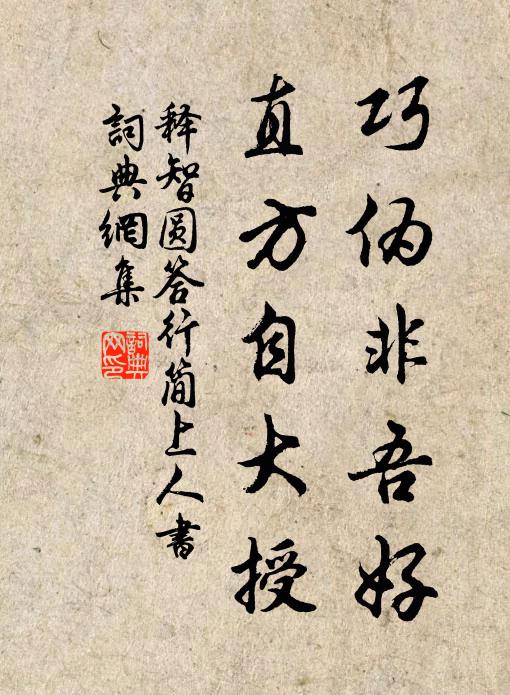 巧伪非吾好
直方自大授
释智圆答行简上人书
詞典網集
詞典網印